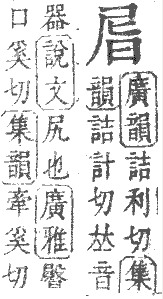 㞓
廣韻詰利切集
韻詰計切𠀤音
器說文尻也廣雅臋
口奚切集韻牽奚切